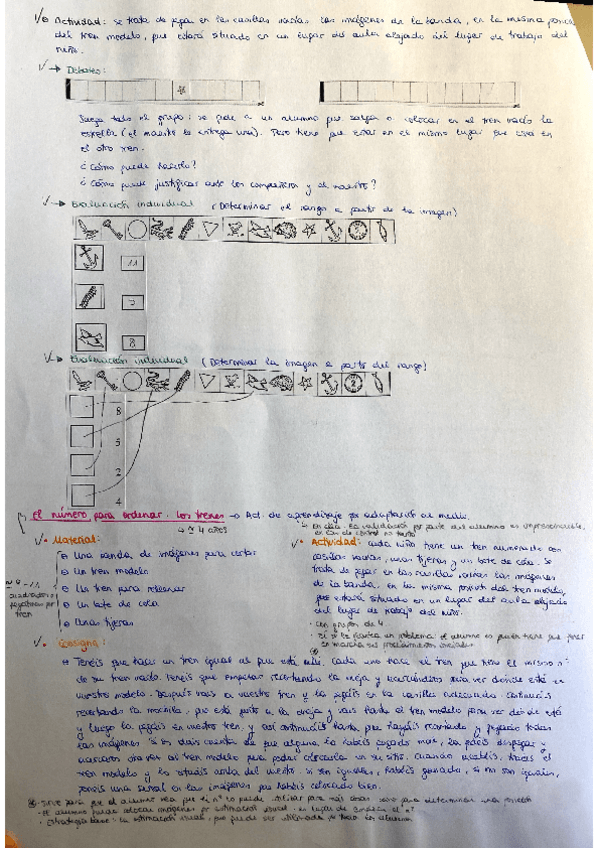 Actividad: se trata de pegar en las casillas vacías las imágenes de la banda, en la misma posición
del tren modelo, que estará situado en un lugar del aula alejado del lugar de trabajo del
niño.
→ Debates:
Juega todo el grupo: se pide a un alumno que salga a colocar en el tren vacío la
estrella (el maestro le entrega una). Pero tiene que estar en el mismo lugar que está en
el otro tren.
¿Cómo puede hacerlo?
¿Cómo puede justificar ante los compañeros y el maestro?
→ Evaluación individual (Determinar el rango a partir de la imagen)
11
5
8
→ Evaluación individual (Determinar la imagen a partir del rango)
8
5
2
4
El número para ordenar: los trenes → Act. de aprendizaje por adaptación al medio.
≃ 4 años
la validación por parte del alumno es imprescindible,
Material:
Una banda de imágenes para cortar
Un tren modelo
Un tren para rellenar
Un bote de cola
Unas tijeras
por
tren
Actividad: cada niño tiene un tren numerado con
casillas vacías, unas tijeras y un bote de cola. Se
trata de pegar en las casillas vacías las imágenes
de la banda, en la misma posición del tren modelo,
que estará situado en un lugar del aula alejado
del lugar de trabajo del niño.
en grupos de 4
Consigna:
Tenéis que hacer un tren igual al que está allí. Cada uno hace el tren que tiene el mismo nº
de su tren vacío. Tenéis que empezar recortando la oveja y acercándoos para ver dónde está en
vuestro modelo. Después vais a vuestro tren y la pegáis en la casilla adecuada. Continuáis
recortando la mochila, que está junto a la oveja y vais hasta el tren modelo para ver dónde está
y luego la pegáis en vuestro tren, y así continuáis hasta que hayáis recortado y pegado todas
las imágenes. Si os dais cuenta de que alguna la habéis pegado mal, la podéis despegar y
acercaros otra vez al tren modelo para poder colocarla en su sitio. Cuando acabéis, traéis el
tren modelo y lo situáis al lado del vuestro. Si son iguales, habéis ganado, si no son iguales,
ponéis una señal en las imágenes que habéis colocado bien.
Sirve para que el alumno vea que el nº lo puede utilizar para más cosas
El alumno puede colocar imágenes por estimación visual en lugar de
Estrategia base: la estimación visual, que puede ser utilizada